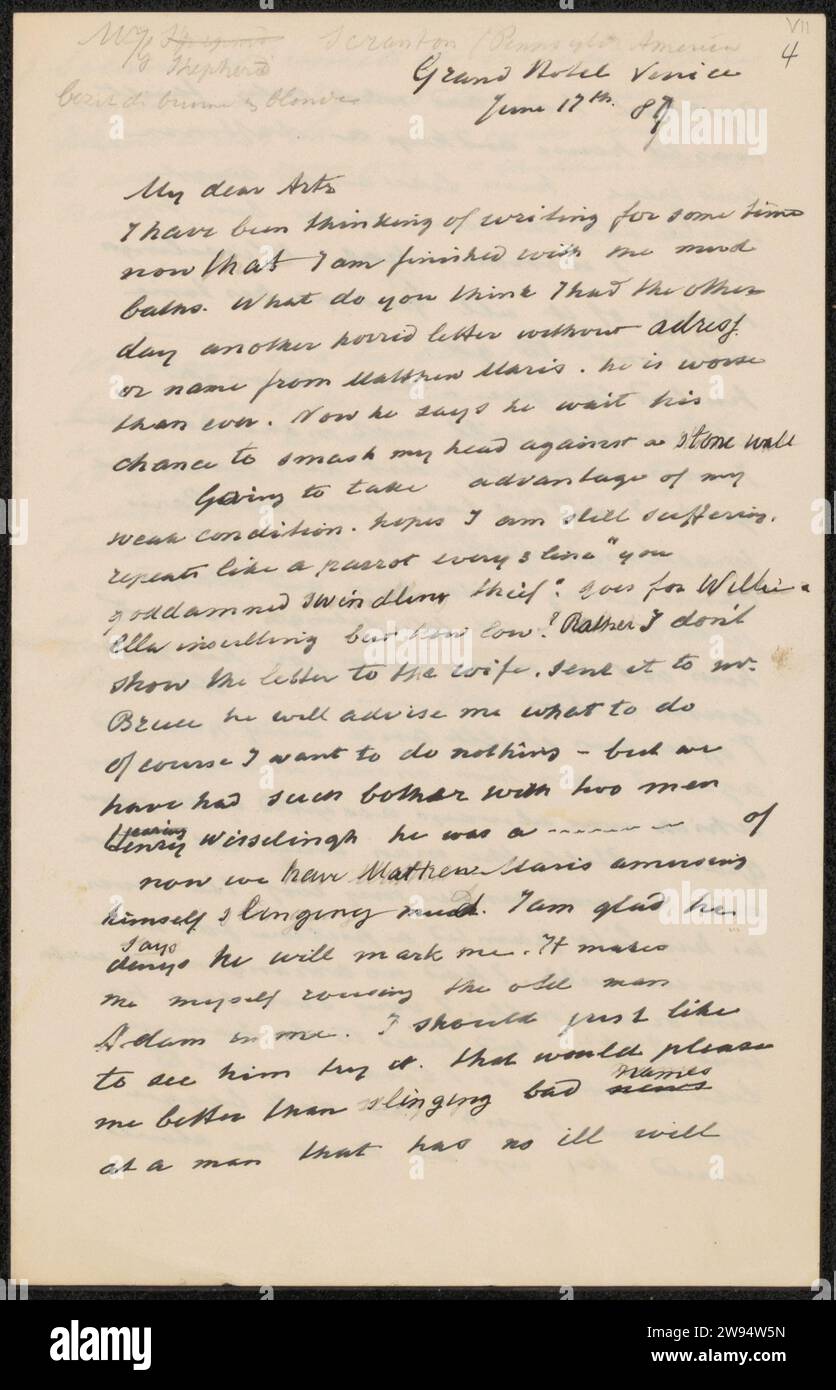 VII
4
Scranton (Pennsylv America
Shepherd
bezit de brune & blonde
Grand Hotel Venice
June 17th. 87
My dear Artz
I have been thinking of writing for some time
now that I am finished with the mud
baths. What do you think I had the other
day another horrid letter without adress
or name from Matthew Maris. he is worse
than ever. Now he says he wait his
chance to smash my head against a stone wall
Going to take advantage of my
weak condition. hopes I am still suffering.
repeats like a parrot every 3 line "you
goddamned swindling thief". goes for Willie
Ella insulting her how low! Rather I don't
show the letter to the wife. sent it to mr.
Bruce he will advise me what to do
of course I want to do nothing - but we
have had such bother with two men
Henry Wisselingh he was a of
now we have Matthew Maris amusing
himself slinging mud. I am glad he
says
he will mark me. It makes
me myself rousing the old man
Adam in me. I should just like
to see him try it. that would please
names
me better than slinging bad news
at a man that has no ill will
alamy
Image ID: 2W94W5N
www.alamy.com